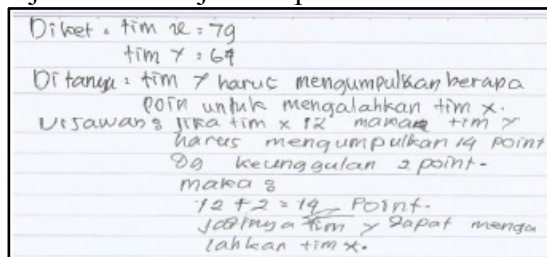 Diket : tim x = 79
tim y : 64
Ditanya : tim y harus mengumpulkan berapa
poin untuk mengalahkan tim x.
Dijawab : Jika tim x 12 maka tim y
harus mengumpulkan 14 point
dg keunggulan 2 point.
maka :
12 + 2 = 14 Point.
Jadinya tim y dapat menga
lahkan tim x.